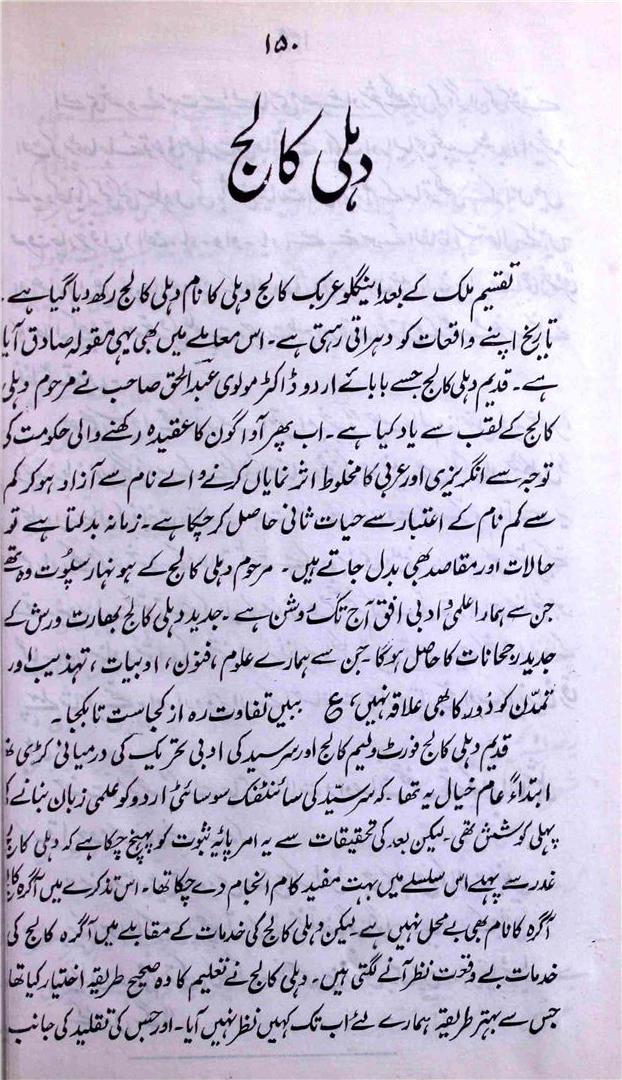 ۱۵۰
دہلی کالج
تقسیم ملک کے بعد اینگلو عربک کالج دہلی کا نام دہلی کالج رکھ دیا گیا ہے۔
تاریخ اپنے واقعات کو دہراتی رہتی ہے۔ اس معاملے میں بھی یہی مقولہ صادق آیا
ہے۔ قدیم دہلی کالج جسے بابائے اردو ڈاکٹر مولوی عبدالحق صاحب نے مرحوم دہلی
کالج کے لقب سے یاد کیا ہے۔ اب پھر آواگون کا عقیدہ رکھنے والی حکومت کی
توجہ سے انگریزی اور عربی کا مخلوط اثر نمایاں کرنے والے نام سے آزاد ہو کر کم
سے کم نام کے اعتبار سے حیات ثانی حاصل کر چکا ہے۔ زمانہ بدلتا ہے تو
حالات اور مقاصد بھی بدل جاتے ہیں۔ مرحوم دہلی کالج کے ہونہار سپوت وہ تھے
جن سے ہمارا علمی و ادبی افق آج تک روشن ہے۔ جدید دہلی کالج بھارت ورش کے
جدید رجحانات کا حاصل ہوگا۔ جن سے ہمارے علوم، فنون، ادبیات، تہذیب اور
تمدّن کو دُور کا بھی علاقہ نہیں، ع ببیں تفاوت رہ از کجاست تا بکجا۔
قدیم دہلی کالج فورٹ ولیم کالج اور سرسید کی ادبی تحریک کی درمیانی کڑی تھا
ابتداءً عام خیال یہ تھا۔ کہ سرسیّد کی سائنٹفک سوسائٹی اردو کو علمی زبان بنانے کی
پہلی کوشش تھی۔ لیکن بعد کی تحقیقات سے یہ امر پایۂ ثبوت کو پہنچ چکا ہے کہ دہلی کالج
غدر سے پہلے اس سلسلے میں بہت مفید کام انجام دے چکا تھا۔ اس تذکرے میں آگرہ کالج
آگرہ کا نام بھی بے محل نہیں ہے لیکن دہلی کالج کی خدمات کے مقابلے میں آگرہ کالج کی
خدمات بے وقعت نظر آنے لگتی ہیں۔ دہلی کالج نے تعلیم کا وہ صحیح طریقہ اختیار کیا تھا
جس سے بہتر طریقہ ہمارے لئے اب تک کہیں نظر نہیں آیا۔ اور جس کی تقلید کی جانب